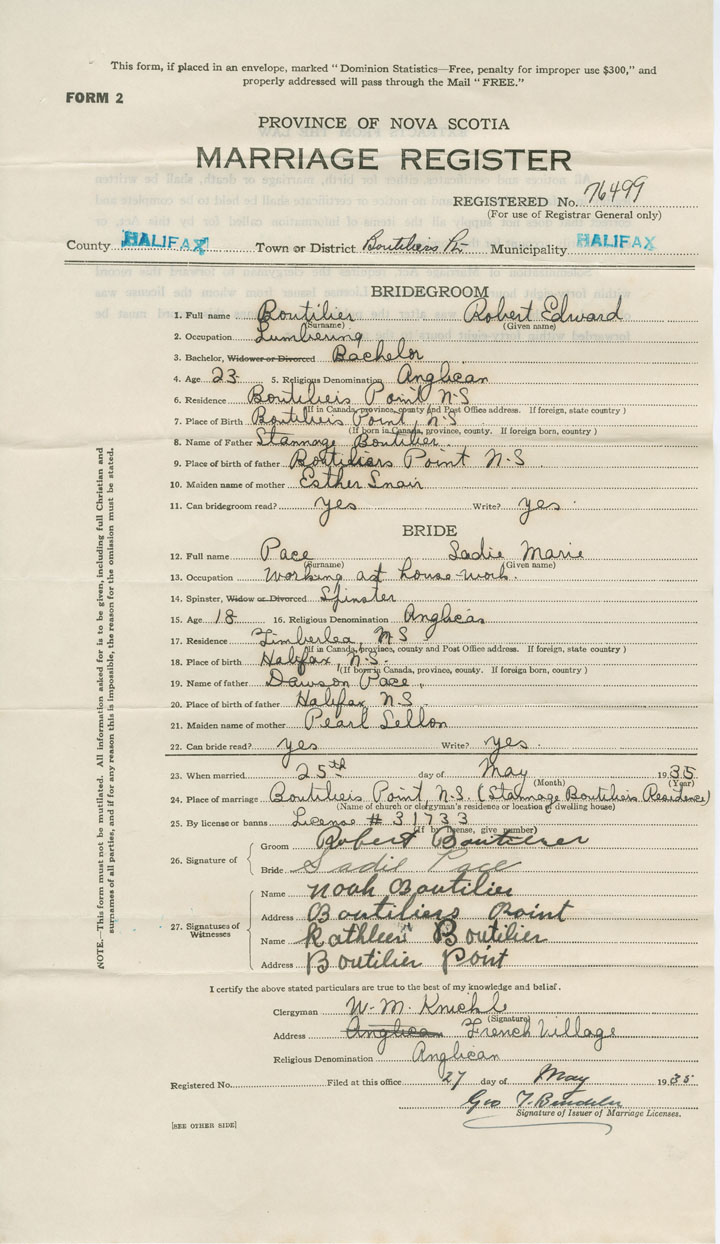 This form, if placed in an envelope, marked "Dominion Statistics—Free, penalty for improper use $300," and
properly addressed will pass through the Mail "FREE."
FORM 2
PROVINCE OF NOVA SCOTIA
MARRIAGE REGISTER
REGISTERED No. 76499
(For use of Registrar General only)
County HALIFAX Town or District Boutiliers Pt. Municipality HALIFAX
BRIDEGROOM
1. Full name Boutilier Robert Edward
(Surname) (Given name)
2. Occupation Lumbering
3. Bachelor, Widower or Divorced Bachelor
4. Age 23 5. Religious Denomination Anglican
6. Residence Boutiliers Point N.S
(If in Canada, province, county and Post Office address. If foreign, state country)
7. Place of Birth Boutiliers Point, N.S
(If born in Canada, province, county. If foreign born, country)
8. Name of Father Stannage Boutilier
9. Place of birth of father Boutiliers Point N.S
10. Maiden name of mother Esther Snair
11. Can bridegroom read? yes Write? yes
BRIDE
12. Full name Pace Sadie Marie
(Surname) (Given name)
13. Occupation Working at house-work.
14. Spinster, Widow or Divorced Spinster
15. Age 18 16. Religious Denomination Anglican
17. Residence Timberlea, N.S
(If in Canada, province, county and Post Office address. If foreign, state country)
18. Place of birth Halifax N.S.
(If born in Canada, province, county. If foreign born, country)
19. Name of father Dawson Pace
20. Place of birth of father Halifax N.S
21. Maiden name of mother Pearl Sellon
22. Can bride read? yes Write? yes.
23. When married 25th day of May 1935
(Month) (Year)
24. Place of marriage Boutiliers Point, N.S. (Stannage Boutiliers Residence)
(Name of church or clergyman's residence or location of dwelling house)
25. By license or banns License # 31733
(If by license, give number)
26. Signature of
Groom Robert Boutilier
Bride Sadie Pace
27. Signatures of Witnesses
Name Noah Boutilier
Address Boutiliers Point
Name Kathleen Boutilier
Address Boutilier Point
I certify the above stated particulars are true to the best of my knowledge and belief.
Clergyman W. M.
(Signature)
Address Anglican French Village
Religious Denomination Anglican
Registered No. Filed at this office 27 day of May 1935
Geo T.
Signature of Issuer of Marriage Licenses.
[SEE OTHER SIDE]
NOTE.—This form must not be mutilated. All information asked for is to be given, including full Christian and
surnames of all parties, and if for any reason this is impossible, the reason for the omission must be stated.